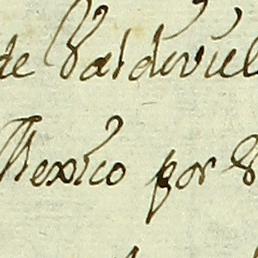 de Valdeviel
Mexico por